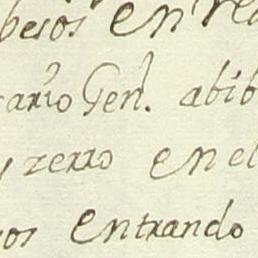 besos En re
ario Gen^l. abib
y zerro en el
os Entrando